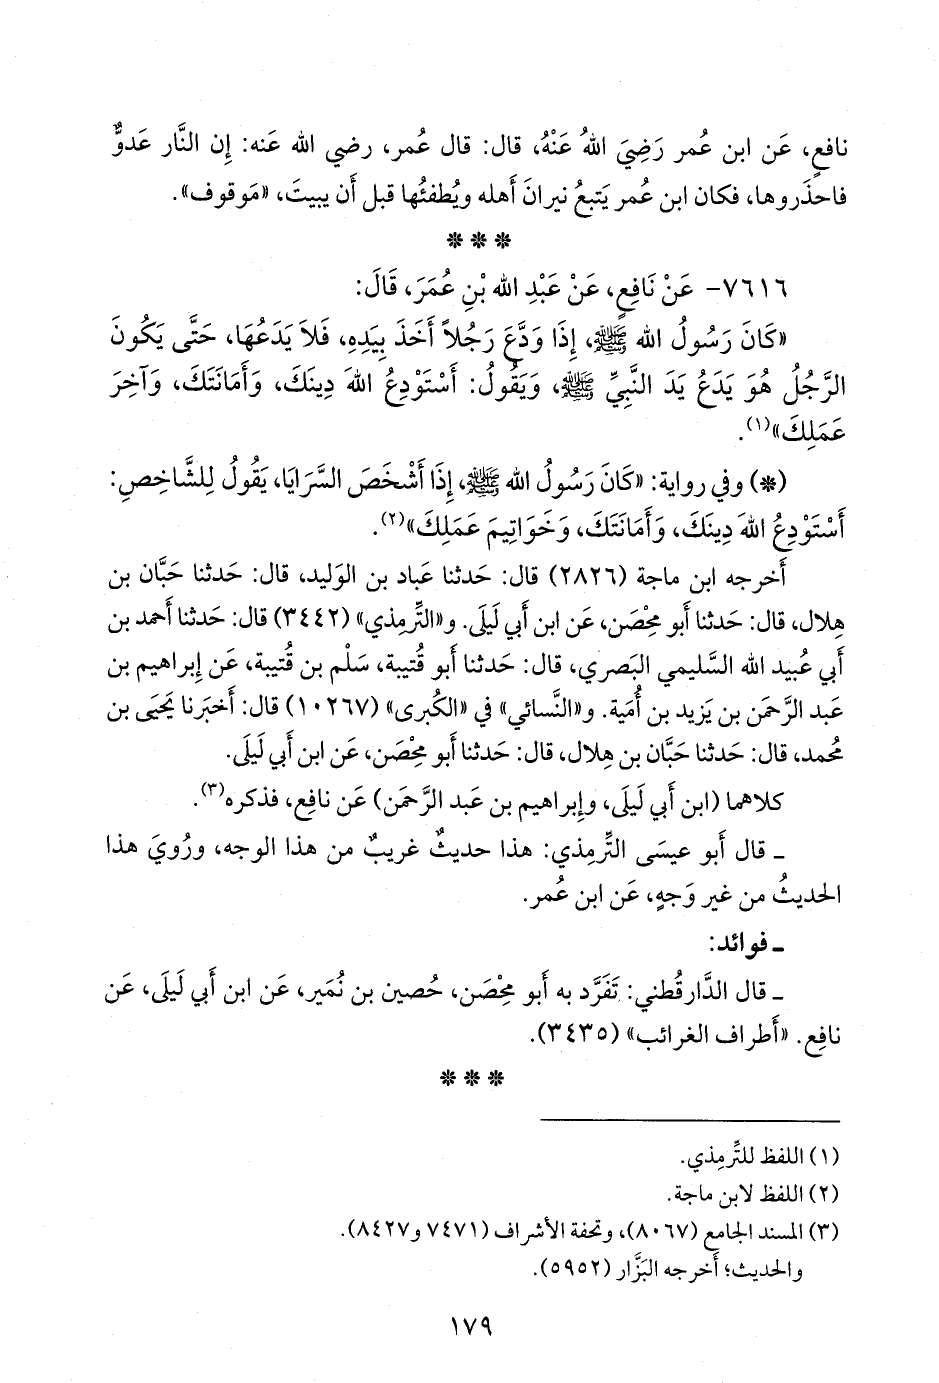 نافعٍ، عَن ابن عُمر رَضِيَ اللهُ عَنْهُ، قال: قال عُمر، رضي الله عَنه: إِن النَّار عَدوٌّ
فاحذَروها، فكان ابن عُمر يَتبعُ نيرانَ أَهله ويُطفئُها قبل أَن يبيتَ، «مَوقوف».
* * *
٧٦١٦- عَنْ نَافِعٍ، عَنْ عَبْدِ الله بْنِ عُمَرَ، قَالَ:
«كَانَ رَسُولُ الله ﷺ، إِذَا وَدَّعَ رَجُلاً أَخَذَ بِيَدِهِ، فَلاَ يَدَعُهَا، حَتَّى يَكُونَ
الرَّجُلُ هُوَ يَدَعُ يَدَ النَّبِيِّ ﷺ، وَيَقُولُ: أَسْتَوْدِعُ اللهَ دِينَكَ، وَأَمَانَتَكَ، وَآخِرَ
عَمَلِكَ»(١).
(*) وفي رواية: «كَانَ رَسُولُ الله ﷺ، إِذَا أَشْخَصَ السَّرَايَا، يَقُولُ لِلشَّاخِصِ:
أَسْتَوْدِعُ اللهَ دِينَكَ، وَأَمَانَتَكَ، وَخَوَاتِيمَ عَمَلِكَ»(٢).
أَخرجه ابن ماجة (٢٨٢٦) قال: حَدثنا عَباد بن الوَليد، قال: حَدثنا حَبَّان بن
هِلال، قال: حَدثنا أَبو مِحْصَن، عَن ابن أَبي لَيلَى. و«التِّرمِذي» (٣٤٤٢) قال: حَدثنا أَحمد بن
أَبي عُبيد الله السَّليمي البَصري، قال: حَدثنا أَبو قُتيبة، سَلْم بن قُتيبة، عَن إِبراهيم بن
عَبد الرَّحمَن بن يَزيد بن أُمَية. و«النَّسائي» في «الكُبرى» (١٠٢٦٧) قال: أَخبَرنا يَحيَى بن
مُحمد، قال: حَدثنا حَبَّان بن هِلال، قال: حَدثنا أَبو مِحْصَن، عَن ابن أَبي لَيلَى.
كلاهما (ابن أَبي لَيلَى، وإِبراهيم بن عَبد الرَّحمَن) عَن نافِع، فذكره(٣).
ـ قال أَبو عيسَى التِّرمِذي: هذا حديثٌ غريبٌ من هذا الوجه، ورُويَ هذا
الحديثُ من غير وَجهٍ، عَن ابن عُمر.
ـ فوائد:
ـ قال الدَّارقُطني: تَفَرَّد به أَبو مِحْصَن، حُصين بن نُمَير، عَن ابن أَبي لَيلَى، عَن
نافِع. «أَطراف الغرائب» (٣٤٣٥).
* * *
(١) اللفظ للتِّرمِذي.
(٢) اللفظ لابن ماجة.
(٣) المسند الجامع (٨٠٦٧)، وتحفة الأشراف (٧٤٧١ و٨٤٢٧).
والحديث؛ أَخرجه البَزَّار (٥٩٥٢).
١٧٩